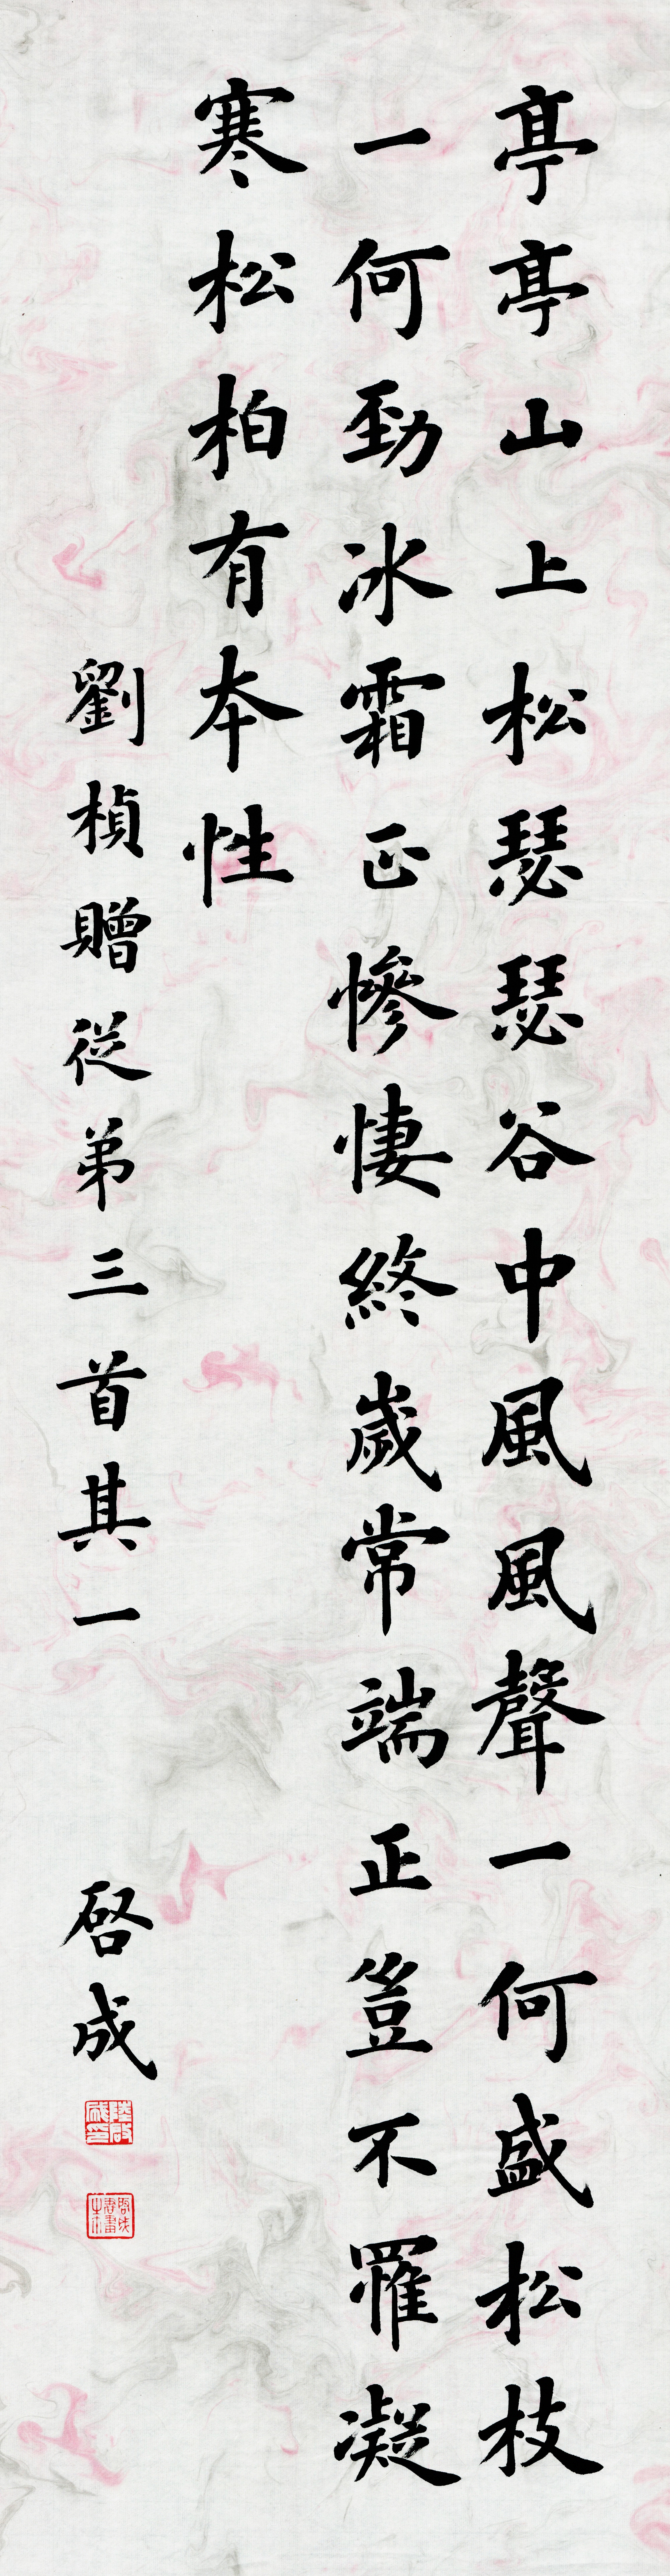 亭亭山上松瑟瑟谷中風風聲一何盛松枝
一何勁冰霜正慘悽終歲常端正豈不罹凝
寒松柏有本性
劉楨贈從弟三首其一
啓成
陸啟成印